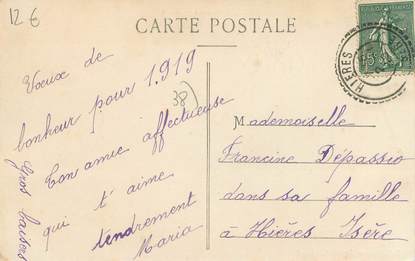 12 €
CARTE POSTALE
HIERES
Vœux de
bonheur pour 1.919
Ton amie affectueuse
qui t'aime
tendrement
Maria
Gros baisers
38
Mademoiselle
Francine Dépassio
dans sa famille
à Hières Isère